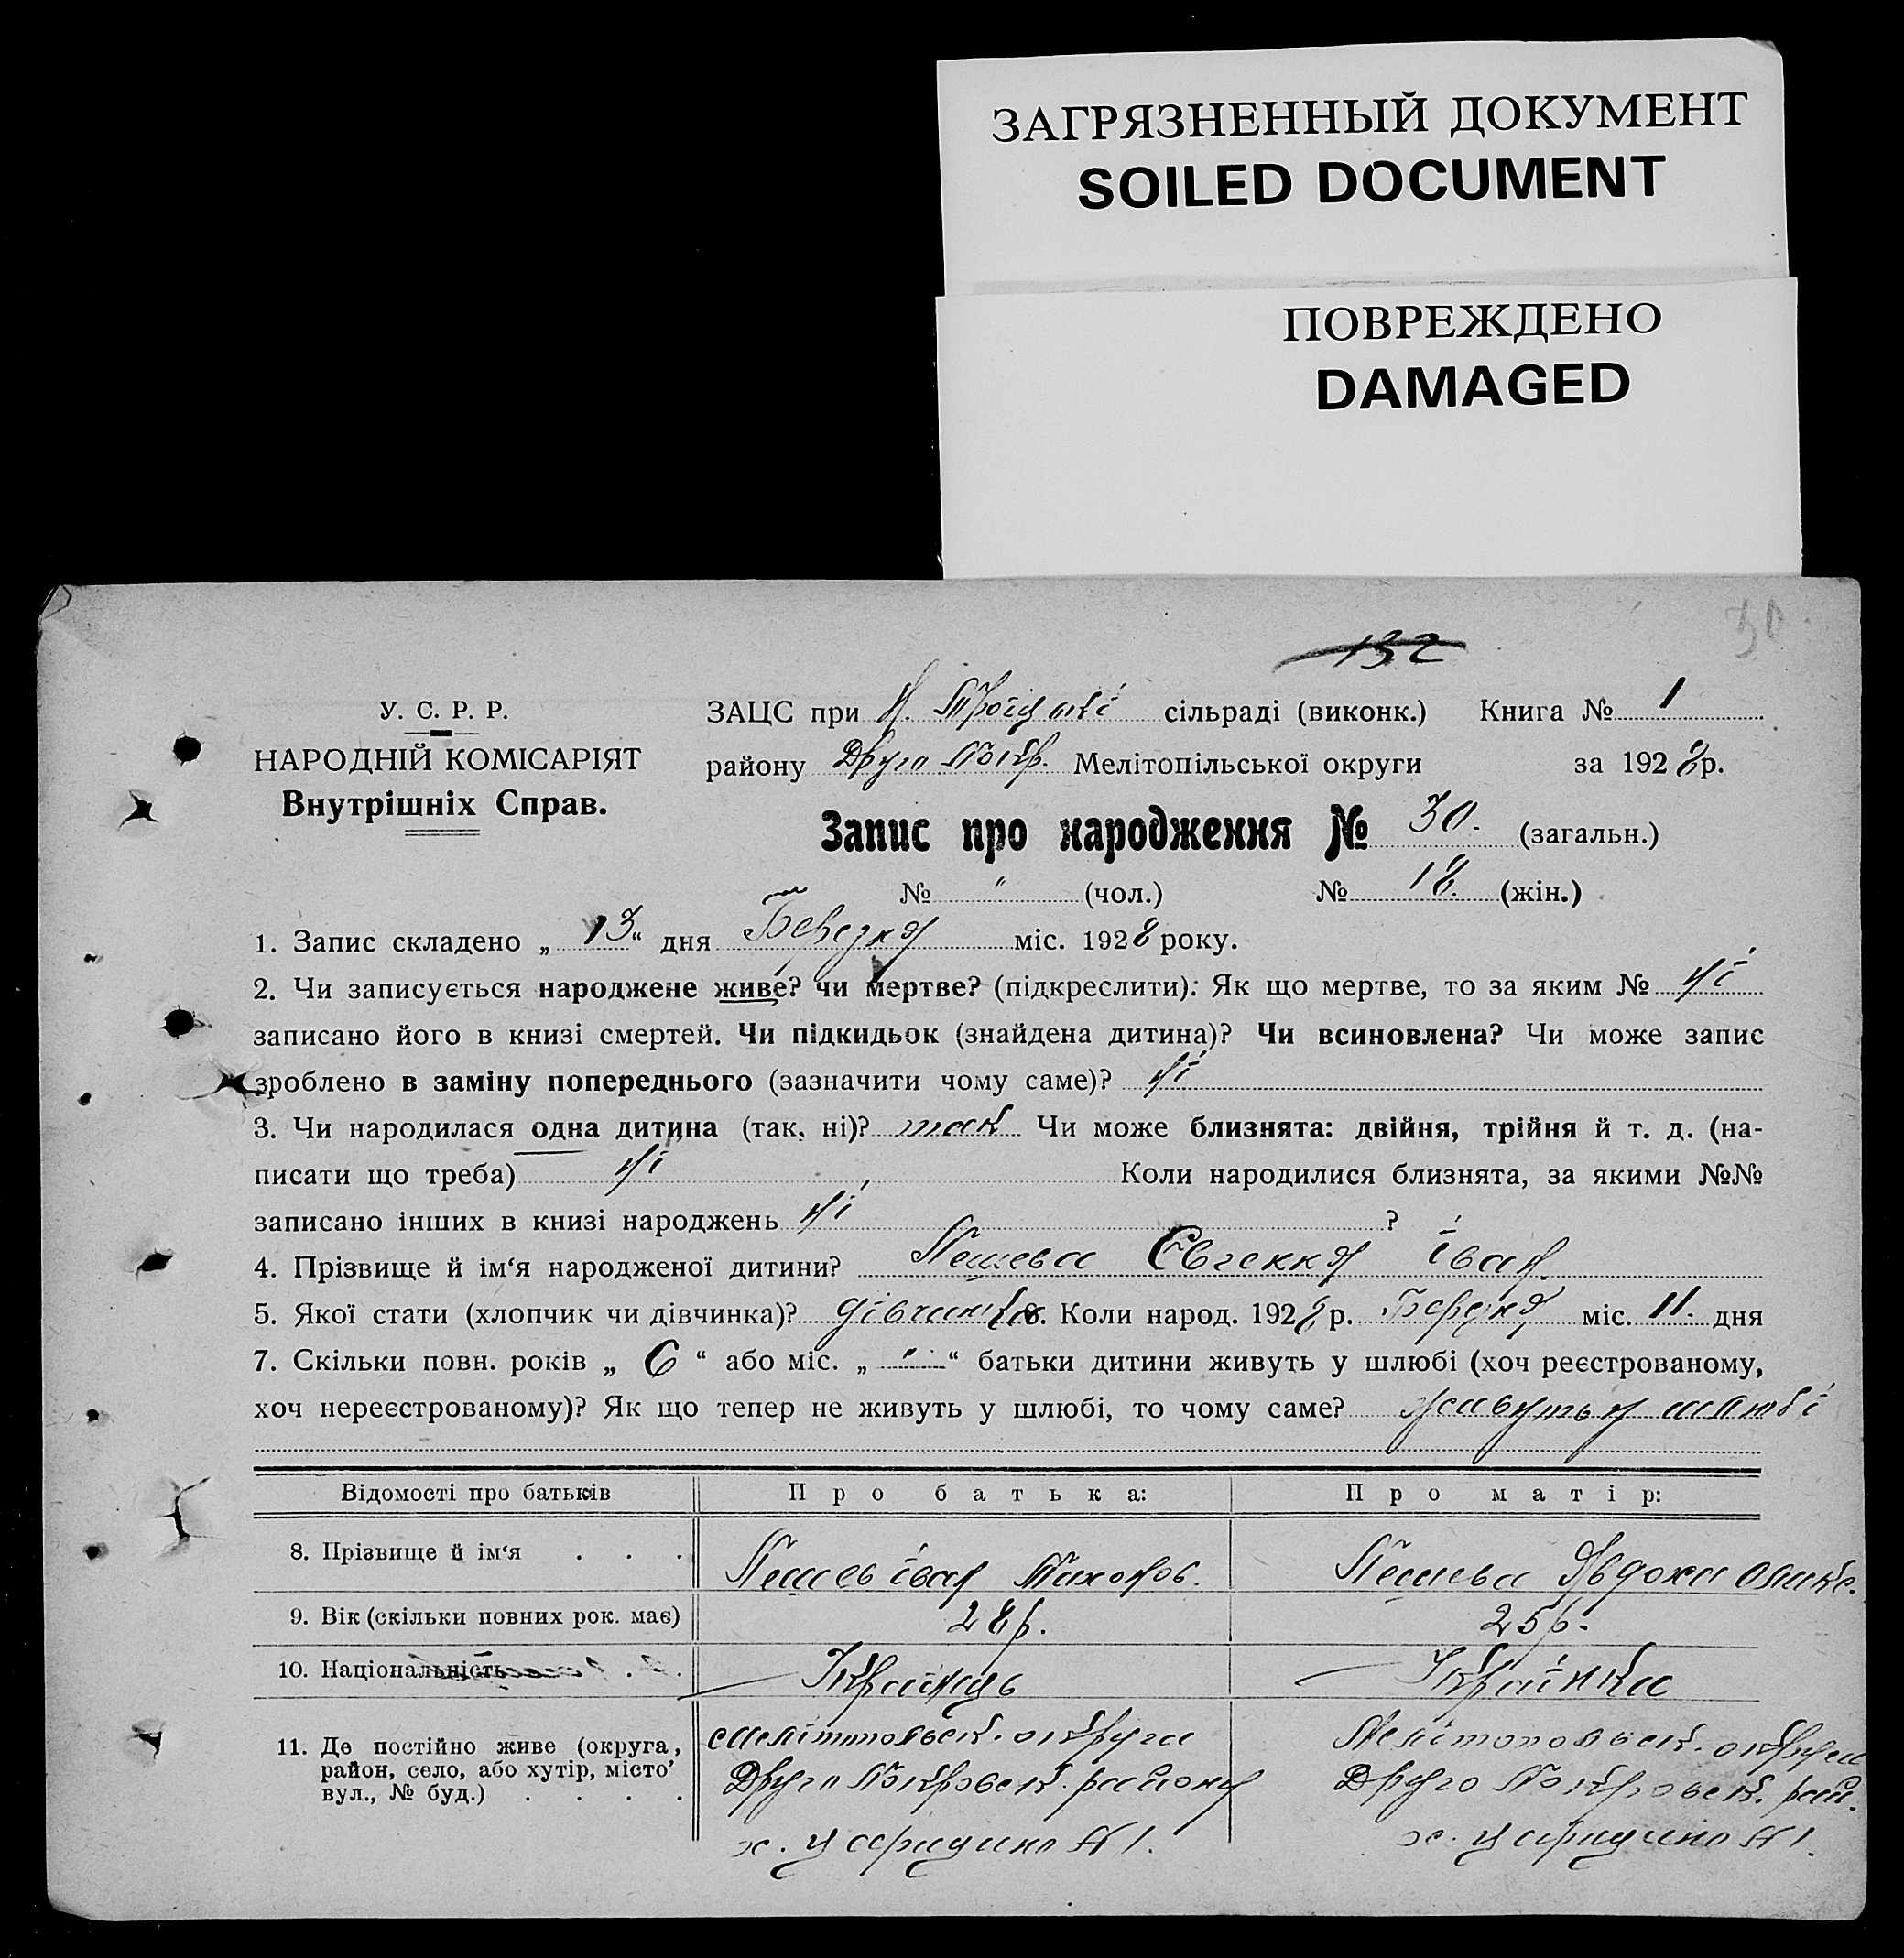 ЗАГРЯЗНЕННЫЙ ДОКУМЕНТ
SOILED DOCUMENT
ПОВРЕЖДЕНО
DAMAGED
30.
132
У. С. Р. Р.
НАРОДНІЙ КОМІСАРІЯТ
Внутрішніх Справ.
ЗАЦС при Н. Троіцькі сільраді (виконк.) Книга № 1
району Друго Покр. Мелітопільської округи за 1928 р.
Запис про народження № 30. (загальн.)
№ " (чол.) № 18. (жін.)
1. Запис складено „ 13 “ дня Березня міс. 1928 року.
2. Чи записується народжене живе? чи мертве? (підкреслити). Як що мертве, то за яким № ні
записано його в книзі смертей. Чи підкидьок (знайдена дитина)? Чи всиновлена? Чи може запис
зроблено в заміну попереднього (зазначити чому саме)? ні
3. Чи народилася одна дитина (так, ні)? так Чи може близнята: двійня, трійня й т. д. (на-
писати що треба) ні Коли народилися близнята, за якими №№
записано інших в книзі народжень ні ?
4. Прізвище й ім‘я народженої дитини? Пешева Євгення Іван.
5. Якої стати (хлопчик чи дівчинка)? дівчинка 6. Коли народ. 1928 р. Березня міс. 11. дня
7. Скільки повн. років „ 6 “ або міс. „ " “ батьки дитини живуть у шлюбі (хоч реєстрованому,
хоч нереєстрованому)? Як що тепер не живуть у шлюбі, то чому саме? живуть у шлюбі
Відомості про батьків Про батька: Про матір:
8. Прізвище й ім‘я . . . Пешев Іван Тихонов. Пешева Явдоха
9. Вік (скільки повних рок. має) 28 р. 25 р.
10. Національність . . Українць Українка
11. Де постійно живе (округа, район, село, або хутір, місто’ вул., № буд.) . . . .
Мелітопольськ. округи
Друго Покровськ. району
х. Царицино № 1.
Мелітопольськ. округи
Друго Покровськ. рай.
х. Царицино № 1.